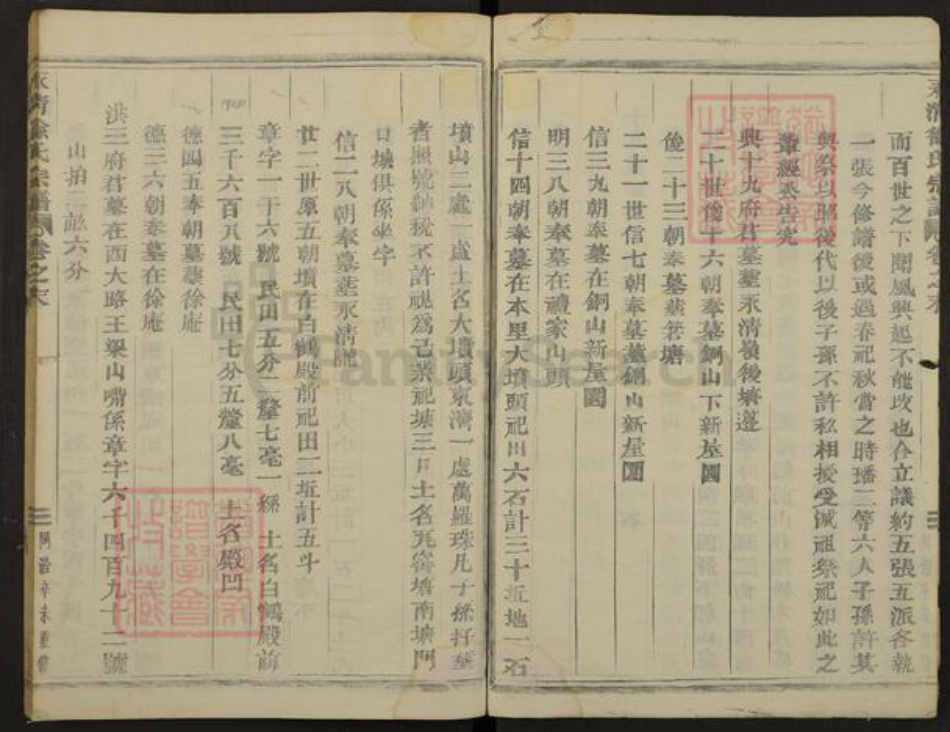 而百世之下聞風興起不能改也合立議約五張五派各執
一張今修譜後或遇春祀秋嘗之時璠二等六人子孫許其
與祭以昭後代以後子孫不許私相授受滅祖祭祀如此之
興十九府君墓塟永清嶺後壙邊
二十世儉十六朝奉墓銅山下新屋園
後二十三朝奉墓塟箬塘
二十一世信七朝奉墓塟銅山新屋園
信三九朝奉墓在銅山新屋園
明三八朝奉墓在禮家山頭
信十四朝奉墓在本里大墳頭祀田六石計三十坵地一石
墳山二處一處土名大墳頭東灣一處萬羅珠凡子孫扦塟
者照號納稅不許視爲己業祀塘三口土名瓦窰塘南塘門
口塘俱係坐字
信二八朝奉墓塟永清
廿二世原五朝墳在白鶴殿前祀田二坵計五斗
章字一千六號 民田五分二釐七毫一絲 土名白鶴殿前
三千六百八號 民田七分五釐八毫 土名殿凹
德四五奉朝墓塟徐庵
德三六朝奉墓在徐庵
洪三府君墓在西大路王梁山嘴係章字六千四百九十二號
山拍二畝六分
永清徐氏宗譜 卷之末
三
民國辛未重修
FamilySearch